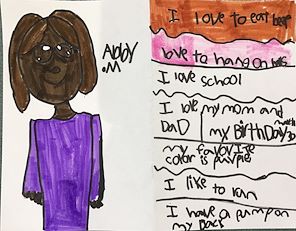 Abby
.M
I love to eat
love to hang on
I love school
I love my mom and
DaD
my BirthDay
my favorite
color is purple
I like to ran
I have a pump on
my Back